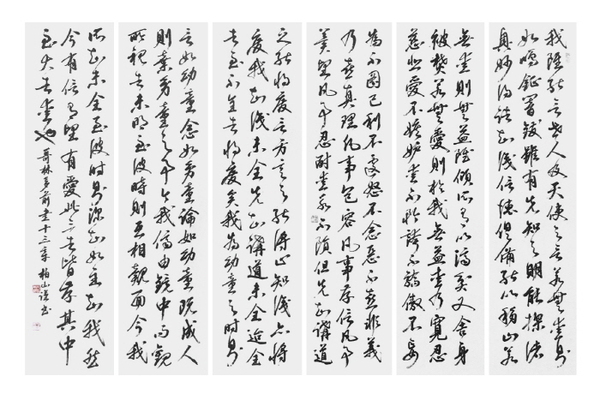 我雖能言世人及天使之言若無愛則
如鳴鉦響鈸雖有先知之明能探諸
真妙得諸知識信德俱備能以移山若
無愛則無益雖傾所有以濟貧又舍身
被焚若無愛則於我無益愛乃寬忍
慈悲愛不嫉妒愛不矜誇不驕傲不妄
為不圖己利不遽怒不念惡不喜非義
乃喜真理凡事包容凡事存信凡事
冀望凡事忍耐愛永不隕但先知講道
之能將廢言方言之能得止知識亦將
廢我知識未全先知講道未全迨全
者至不全者將廢矣我為幼童之時則
言如幼童念如幼童論如幼童既成人
則棄幼童之事今我儕由鏡中而觀
所視者未明至彼時則互相覿面今我
所知未全至彼時則深知如主知我然
今有信有望有愛此三者皆存其中
至大者愛也 哥林多前書十三章 柏山謹書